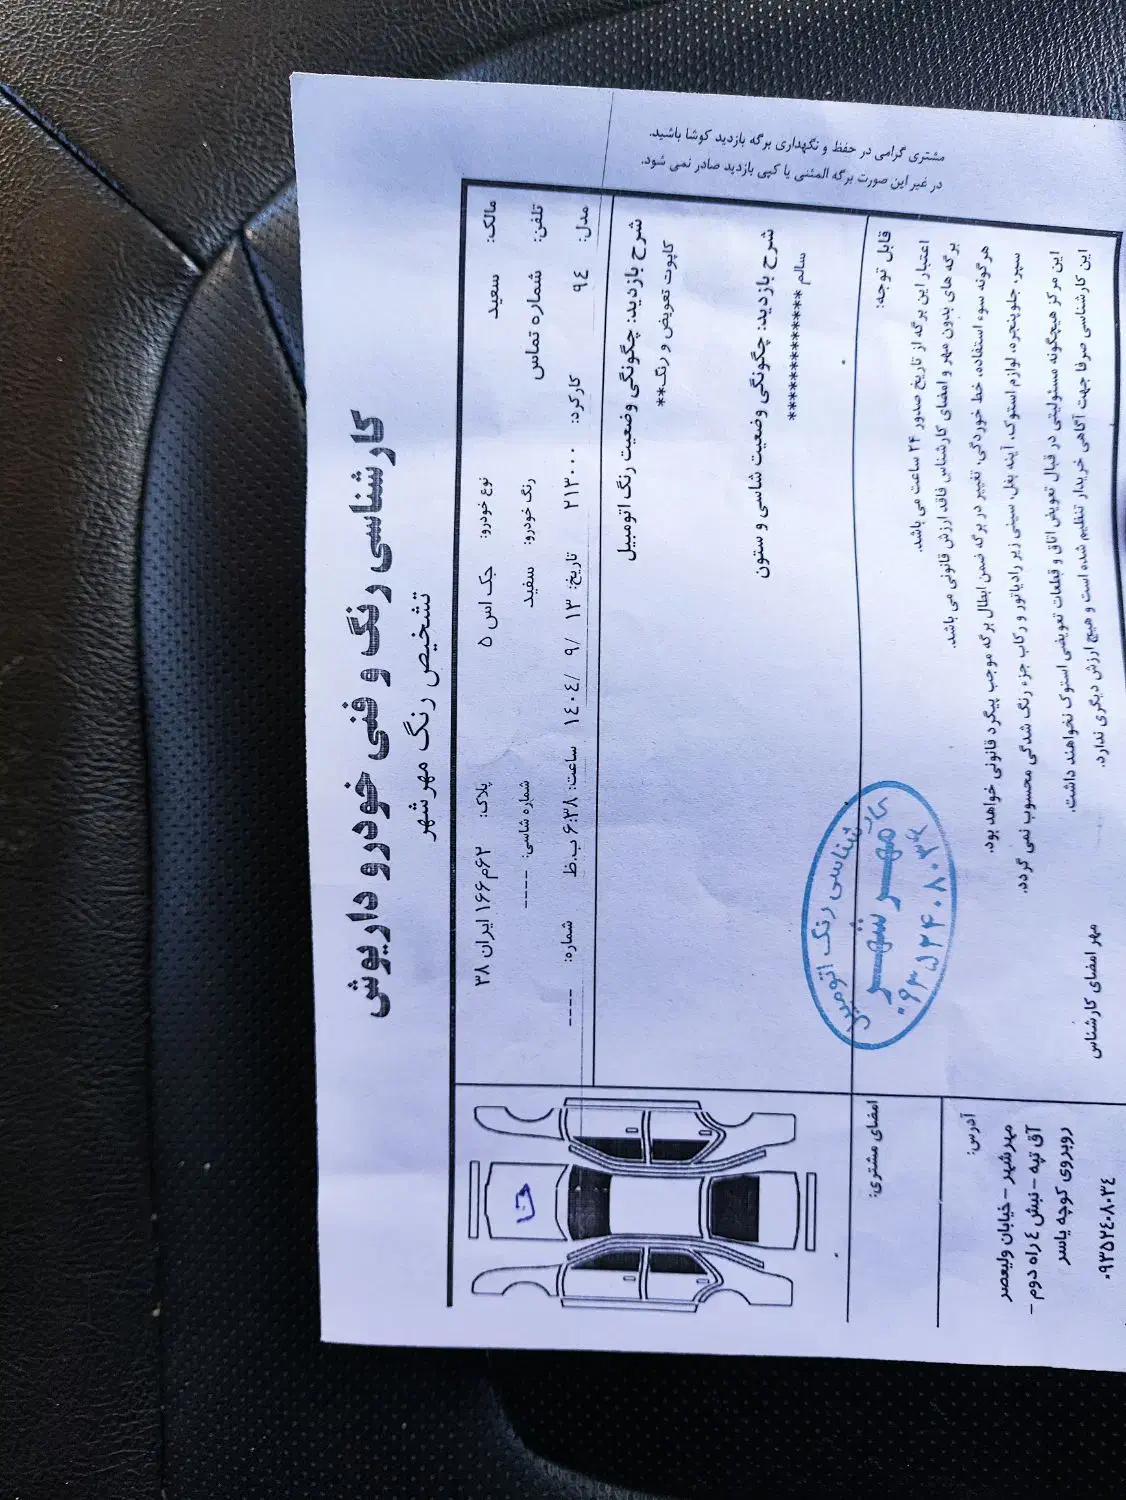 کارشناسی رنگ و فنی خودرو داریوش
تشخیص رنگ مهرشهر
مالک: سعید نوع خودرو: جک اس ۵ پلاک: ۶۲م۱۶۶ ایران ۳۸
تلفن: شماره تماس رنگ خودرو: سفید شماره شاسی: ----
مدل: ۹٤ کارکرد: ۲۱۳۰۰۰ تاریخ: ۱۳ /۹ /۱٤۰٤ ساعت: ۶:۳۸ ب.ظ شماره: ----
شرح بازدید: چگونگی وضعیت رنگ اتومبیل
کاپوت تعویض و رنگ**
شرح بازدید: چگونگی وضعیت شاسی و ستون
سالم ************
قابل توجه:
اعتبار این برگه از تاریخ صدور ۲۴ ساعت می باشد.
برگه های بدون مهر و امضای کارشناس فاقد ارزش قانونی می باشد.
هرگونه سوء استفاده، خط خوردگی، تغییر در برگه ضمن ابطال برگه موجب پیگرد قانونی خواهد بود.
سپر، جلوپنجره، لوازم استوک، آینه بغل، سینی زیر رادیاتور و رکاب جزء رنگ شدگی محسوب نمی گردد.
این مرکز هیچگونه مسئولیتی در قبال تعویض اتاق و قطعات تعویضی استوک نخواهند داشت.
این کارشناسی صرفا جهت آگاهی خریدار تنظیم شده است و هیچ ارزش دیگری ندارد.
مهر امضای کارشناس
کارشناسی رنگ اتومبیل
مهرشهر
۰۹۳۵۲۴۰۸۰۳۴
امضای مشتری:
آدرس:
مهرشهر - خیابان ولیعصر
آق تپه - نبش ٤ راه دوم -
روبروی کوچه یاسر
۰۹۳۵۲٤۰۸۰۳٤
مشتری گرامی در حفظ و نگهداری برگه بازدید کوشا باشید.
در غیر این صورت برگه المثنی یا کپی بازدید صادر نمی شود.